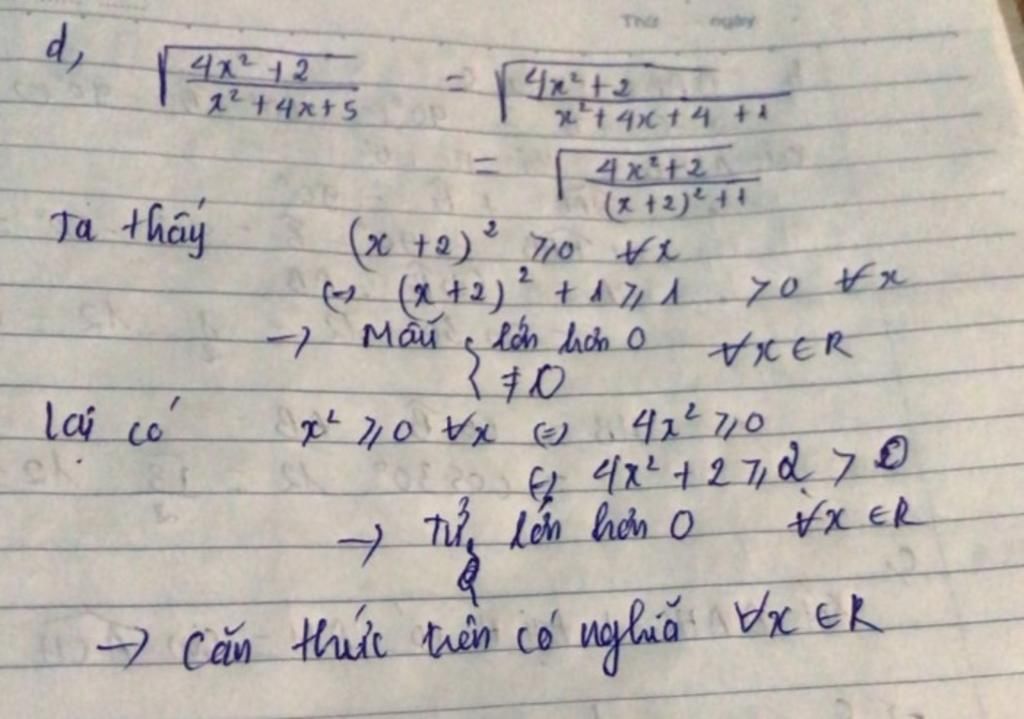 Thứ ngày
d, √((4x² + 2)/(x² + 4x + 5)) = √((4x² + 2)/(x² + 4x + 4 + 1))
= √((4x² + 2)/((x + 2)² + 1))
Ta thấy (x + 2)² ⩾ 0 ∀x
(=) (x + 2)² + 1 ⩾ 1 > 0 ∀x
→ Mẫu { lớn hơn 0 ∀x ∈ R
≠ 0
lại có x² ⩾ 0 ∀x (=) 4x² ⩾ 0
(=) 4x² + 2 ⩾ 2 > 0
→ Tử lớn hơn 0 ∀x ∈ R
→ Căn thức trên có nghĩa ∀x ∈ R